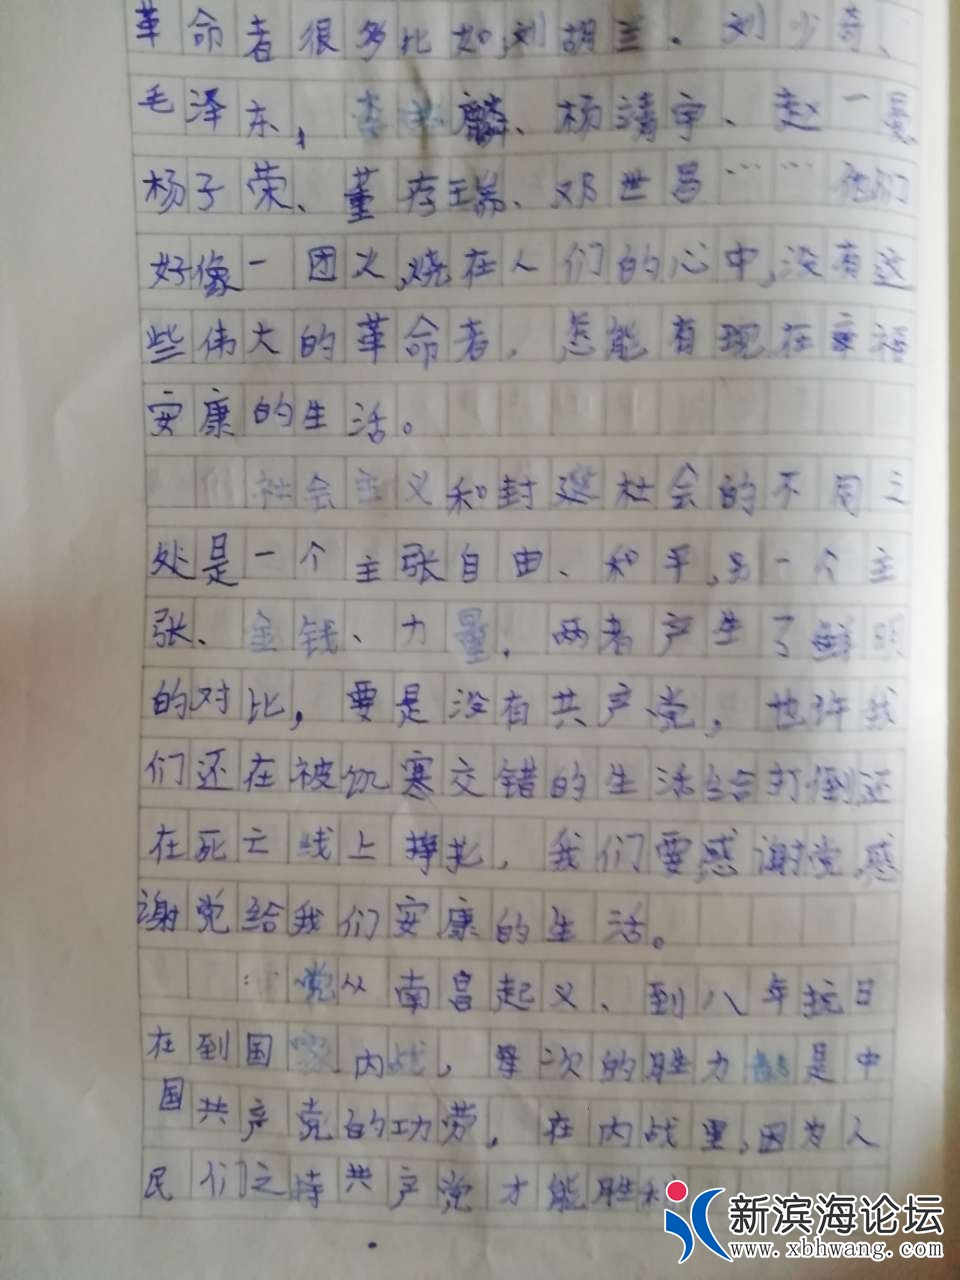 革命者很多比如,刘胡兰、刘少奇、
毛泽东,李兆麟、杨靖宇、赵一曼
杨子荣、董存瑞、邓世昌……他们
好像一团火,烧在人们的心中,没有这
些伟大的革命者,怎能有现在幸福
安康的生活。
社会主义和封建社会的不同之
处是一个主张自由、和平,另一个主
张、金钱、力量,两者产生了鲜明
的对比,要是没有共产党,也许我
们还在被饥寒交错的生活给打倒还
在死亡线上挣扎,我们要感谢党,感
谢党给我们安康的生活。
党从南昌起义、到八年抗日
在到国内战,每一次的胜力都是中
国共产党的功劳,在内战里,因为人
民们支持共产党才能胜利
新滨海论坛
www.xbhwang.com